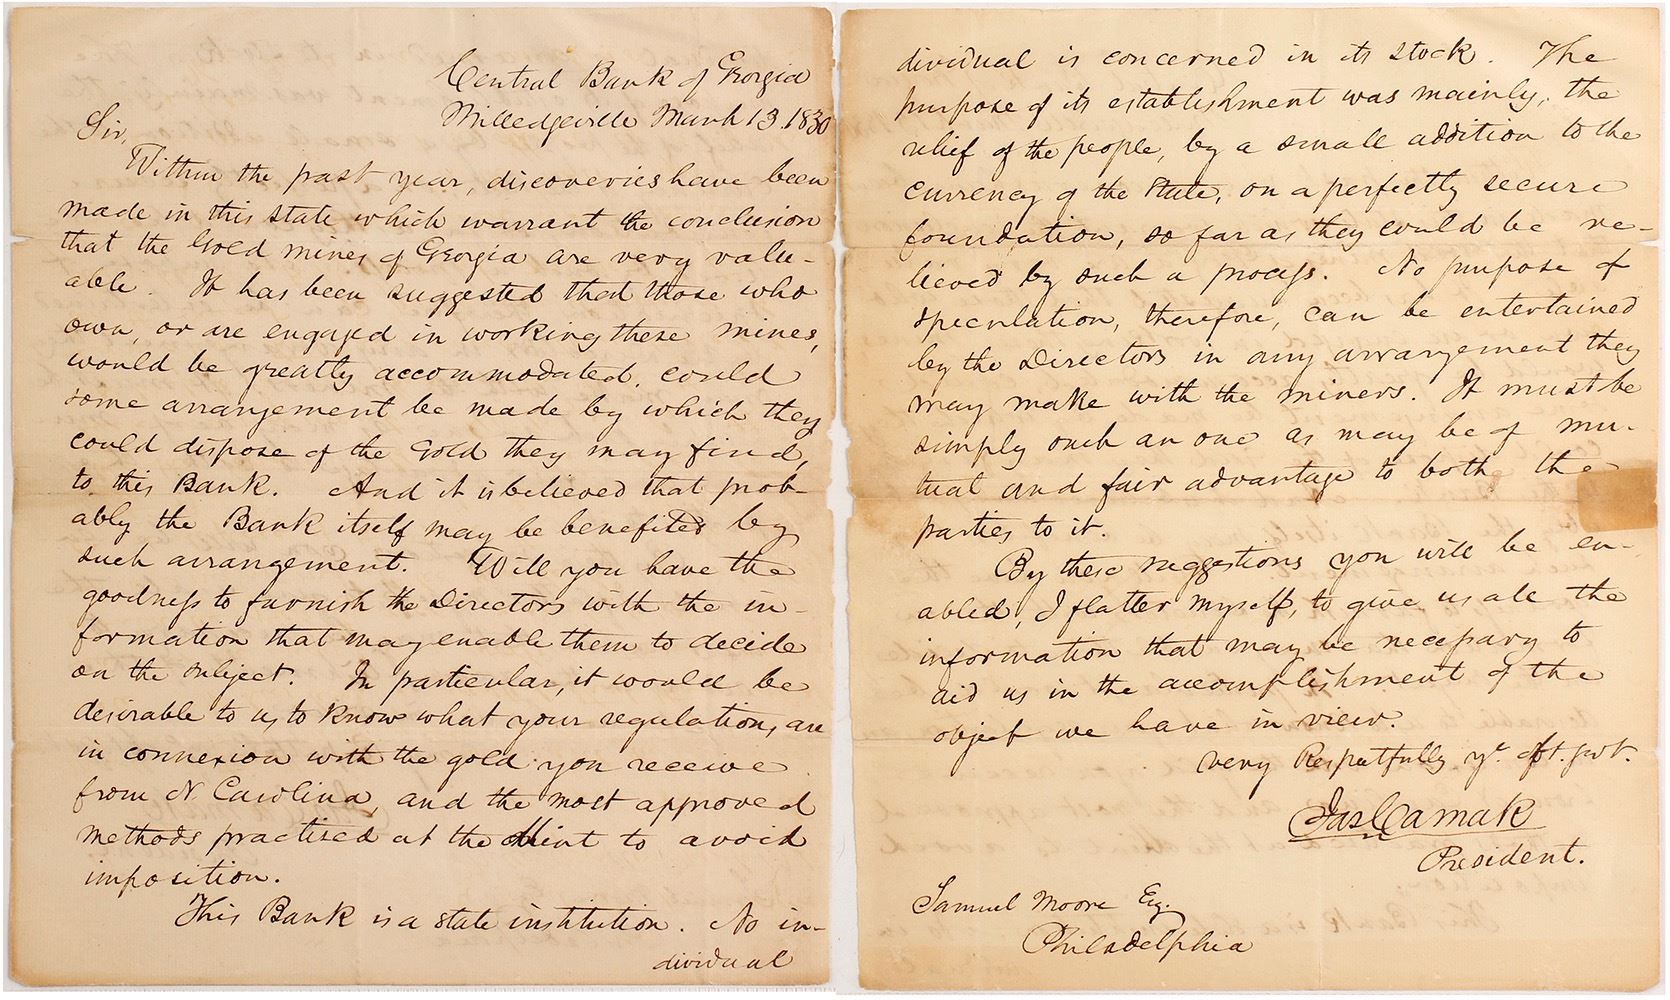 Central Bank of Georgia
Milledgeville March 13. 1830
Sir,
Within the past year, discoveries have been
made in this state which warrant the conclusion
that the Gold mines of Georgia are very valu-
able. It has been suggested that those who
own, or are engaged in working these mines,
would be greatly accommodated, could
some arrangement be made by which they
could dispose of the Gold they may find,
to this Bank. And it is believed that prob-
ably the Bank itself may be benefited by
such arrangement. Will you have the
goodness to furnish the Directors with the in-
formation that may enable them to decide
on the subject. In particular, it would be
desirable to us to know what your regulations are
in connexion with the gold you receive
from N. Carolina, and the most approved
methods practised at the Mint to avoid
imposition.
This Bank is a state institution. No in-
dividual
dividual is concerned in its stock. The
purpose of its establishment was mainly, the
relief of the people, by a small addition to the
currency of the State, on a perfectly secure
foundation, so far as they could be re-
lieved by such a process. No purpose of
speculation, therefore, can be entertained
by the Directors in any arrangement they
may make with the miners. It must be
simply such an one as may be of mu-
tual and fair advantage to both the
parties to it.
By these suggestions you will be en-
abled, I flatter myself, to give us all the
information that may be necessary to
aid us in the accomplishment of the
object we have in view.
Very Respectfully yr. obt. svt.
Jas Camak
President.
Samuel Moore Esq.
Philadelphia